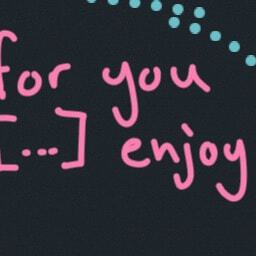 for you
[...] enjoy